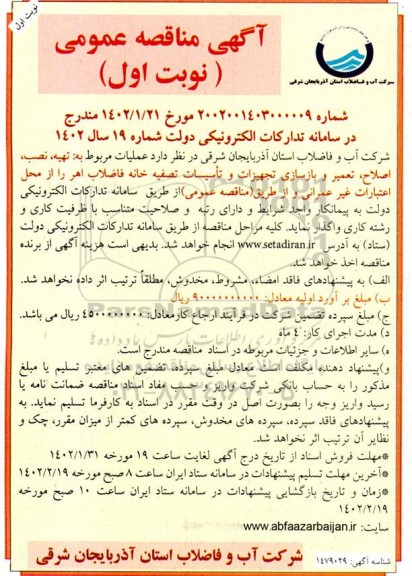 نوبت اول
آگهی مناقصه عمومی
( نوبت اول)
شرکت آب و فاضلاب استان آذربایجان شرقی
شماره ۲۰۰۲۰۰۱۴۰۳۰۰۰۰۰۹ مورخ ۱۴۰۲/۱/۲۱ مندرج
در سامانه تدارکات الکترونیکی دولت شماره ۱۹ سال ۱۴۰۲
شرکت آب و فاضلاب استان آذربایجان شرقی در نظر دارد عملیات مربوط به: تهیه، نصب،
اصلاح، تعمیر و بازسازی تجهیزات و تأسیسات تصفیه خانه فاضلاب اهر را از محل
اعتبارات غیر عمرانی و از طریق(مناقصه عمومی)از طریق سامانه تدارکات الکترونیکی
دولت به پیمانکار واجد شرایط و دارای رتبه و صلاحیت متناسب با ظرفیت کاری و
رشته کاری واگذار نماید. کلیه مراحل مناقصه از طریق سامانه تدارکات الکترونیکی دولت
(ستاد) به آدرس www.setadiran.ir انجام خواهد شد. بدیهی است هزینه آگهی از برنده
مناقصه اخذ خواهد شد.
الف) به پیشنهادهای فاقد امضاء، مشروط، مخدوش، مطلقاً ترتیب اثر داده نخواهد شد.
ب) مبلغ بر آورد اولیه معادل: ۹۰۰۰۰۰۰۰۰۰ ریال
ج) مبلغ سپرده تضمین شرکت در فرآیند ارجاع کارمعادل: ۴۵۰۰۰۰۰۰۰ ریال می باشد.
د) مدت اجرای کار: ۴ ماه
ه) سایر اطلاعات و جزئیات مربوطه در اسناد مناقصه مندرج است.
و)پیشنهاد دهنده مکلف است معادل مبلغ سپرده، تضمین های معتبر تسلیم یا مبلغ
مذکور را به حساب بانکی شرکت واریزو حسب مفاد اسناد مناقصه ضمانت نامه یا
رسید واریز وجه را بصورت اصل در وقت مقرر در اسناد به کارفرما تسلیم نماید. به
پیشنهادهای فاقد سپرده، سپرده های مخدوش، سپرده های کمتر از میزان مقرر، چک و
نظایر آن ترتیب اثر نخواهد شد.
*مهلت فروش اسناد از تاریخ درج آگهی لغایت ساعت ۱۹ مورخه ۱۴۰۲/۱/۳۱
*آخرین مهلت تسلیم پیشنهادات در سامانه ستاد ایران ساعت ۸ صبح مورخه ۱۴۰۲/۲/۱۹
*زمان و تاریخ بازگشایی پیشنهادات در سامانه ستاد ایران ساعت ۱۰ صبح مورخه
۱۴۰۲/۲/۱۹
سایت: www.abfaazarbaijan.ir
شناسه آگهی: ۱۴۷۹۰۲۹
شرکت آب و فاضلاب استان آذربایجان شرقی